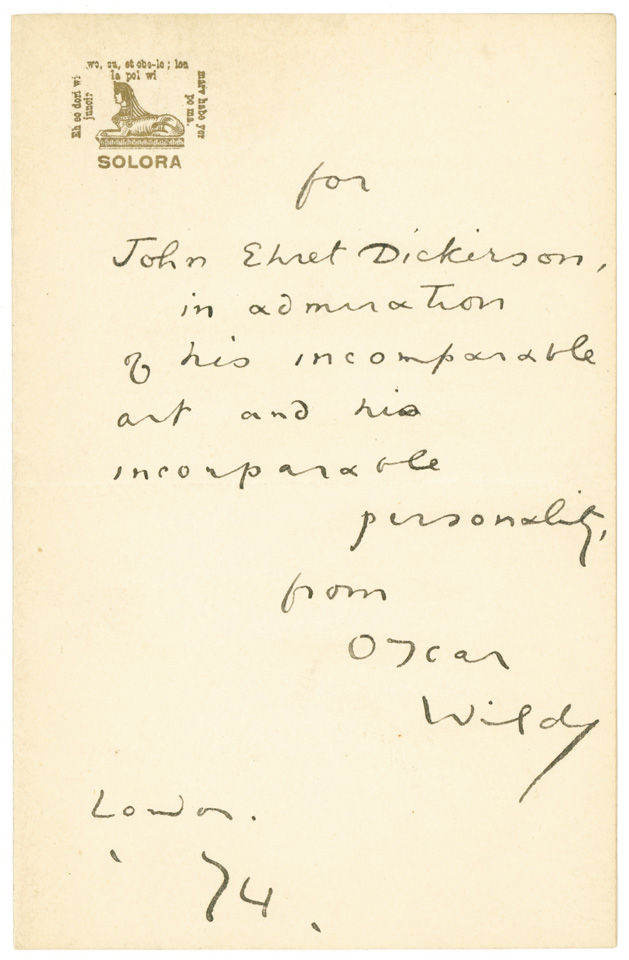 Eh eo dori wi
junci?
wo, su, et obo-lo ; lon
la pol wi
marv habo yer
po ma.
SOLORA
for
John Ehret Dickerson,
in admiration
of his incomparable
art and his
incomparable
personality,
from
Oscar
Wilde
London.
'74.